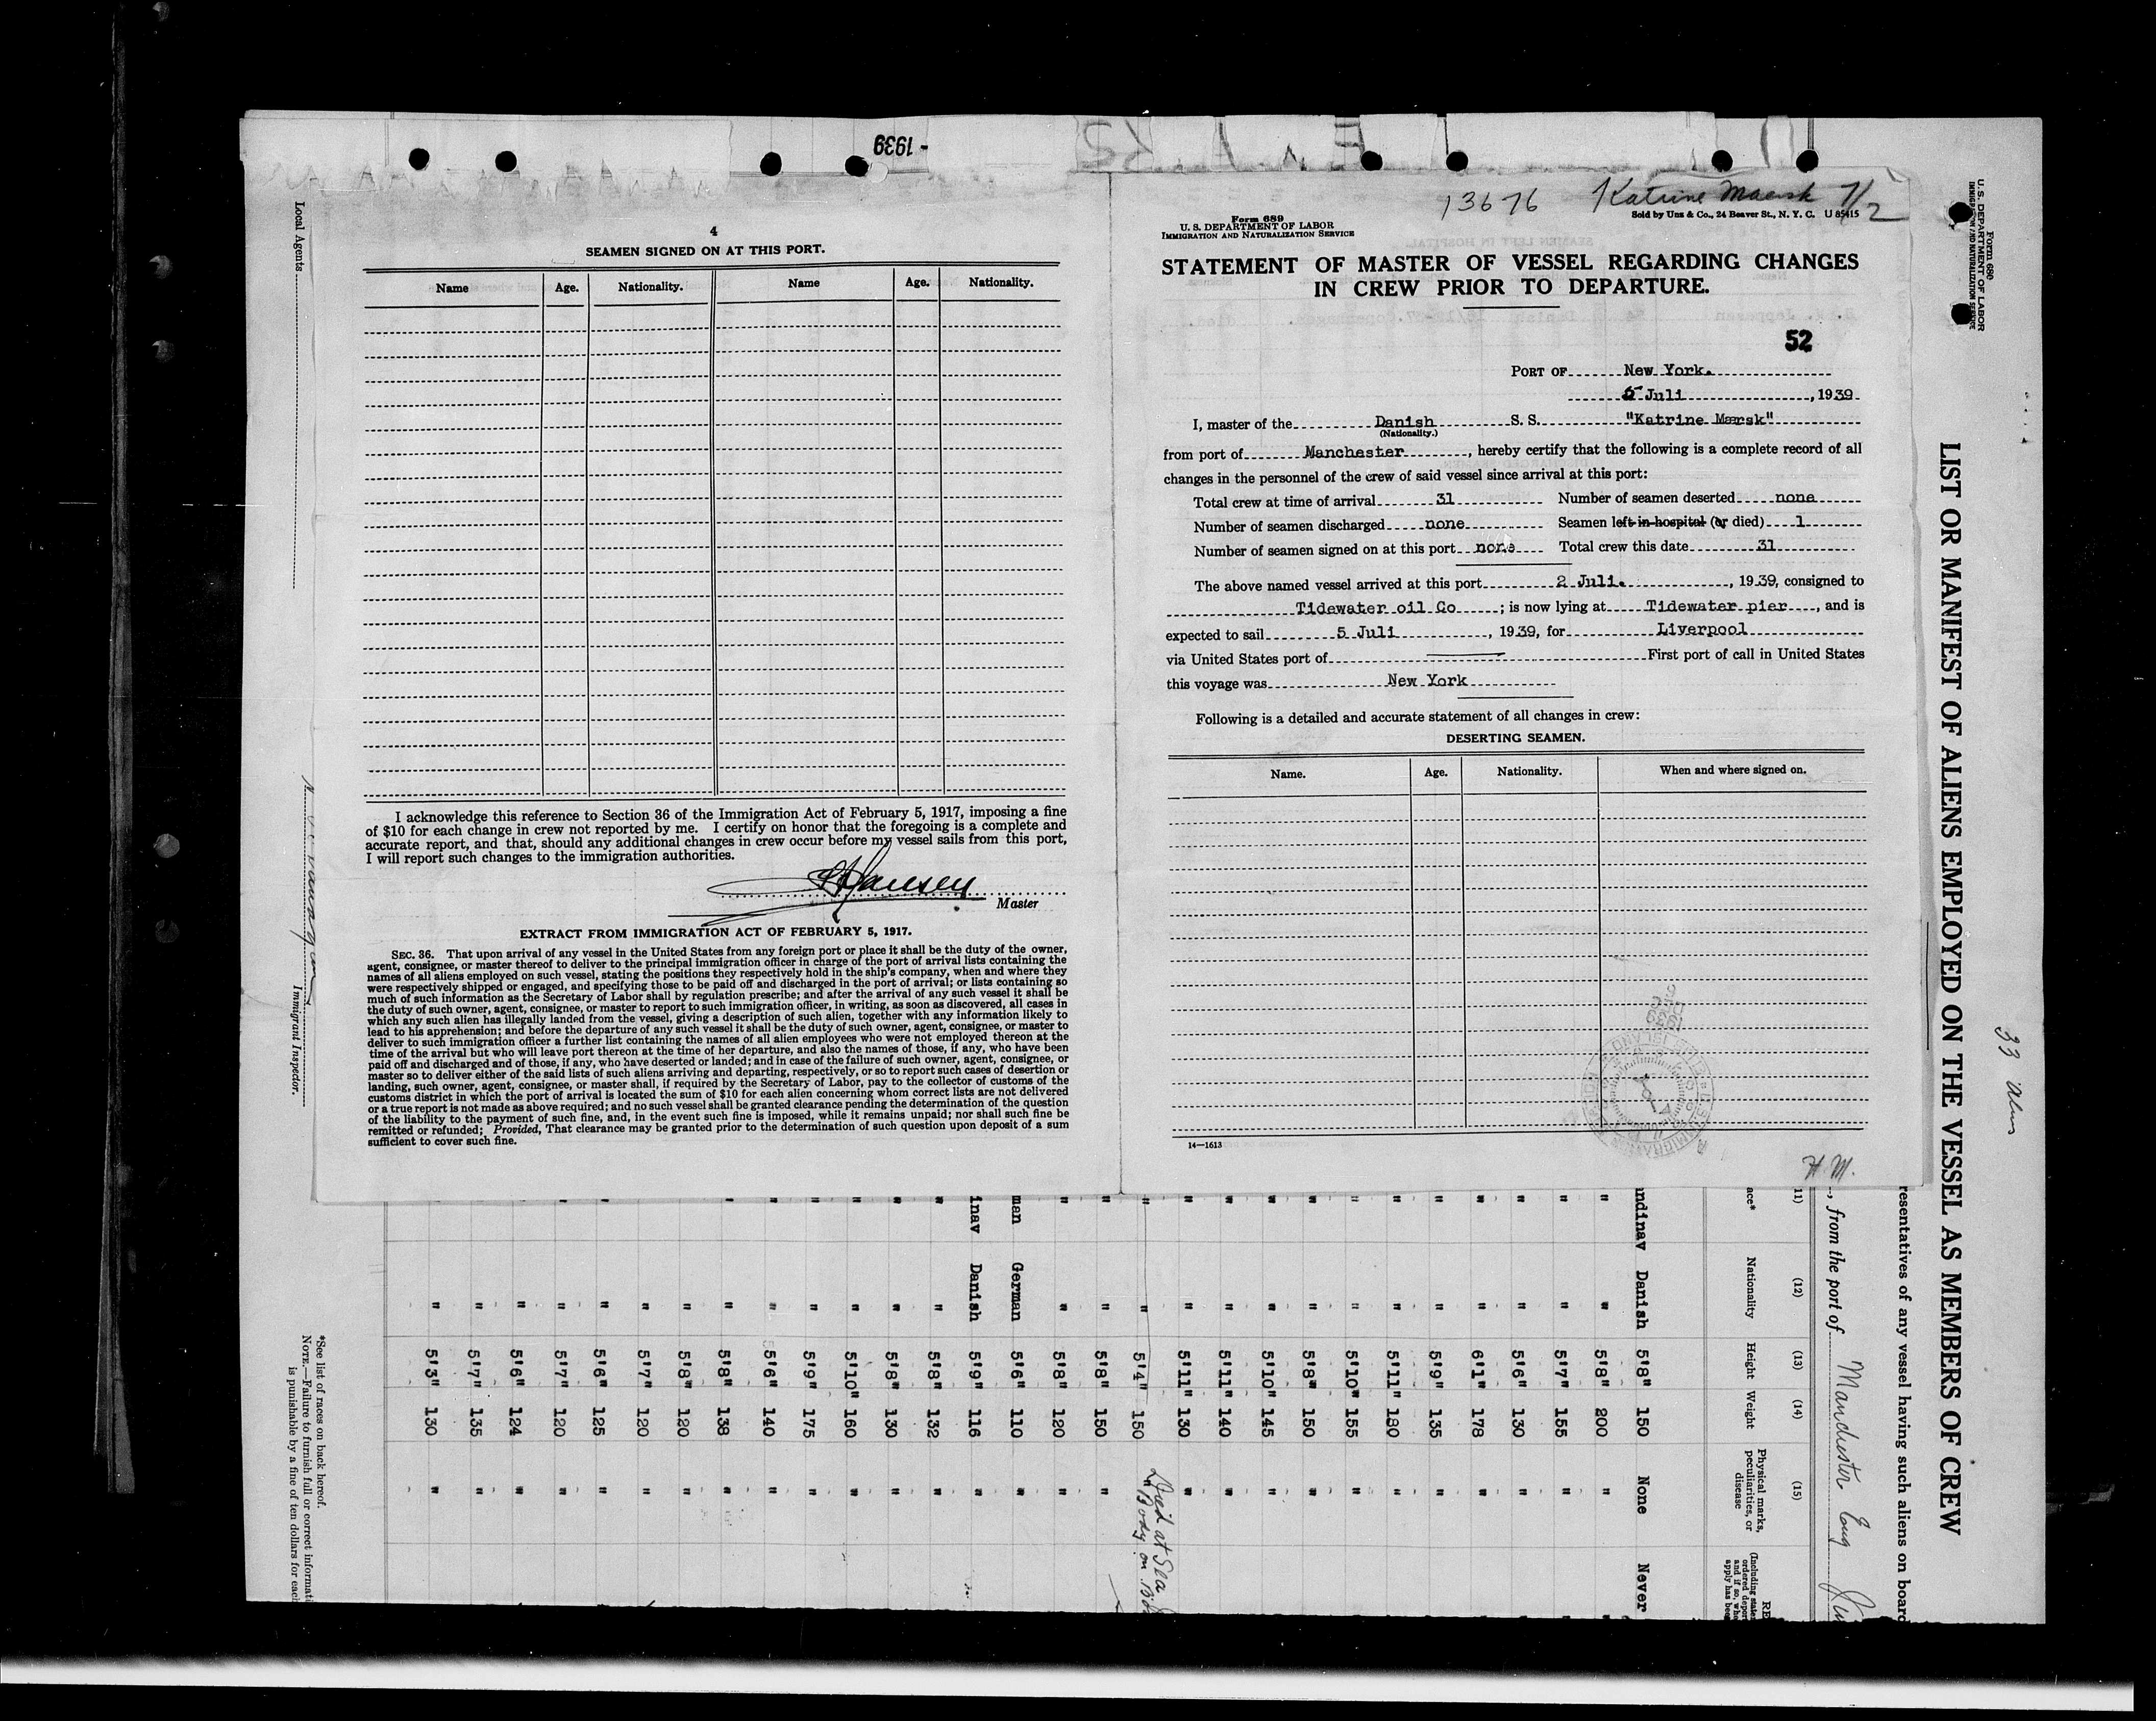 - 1939
4
SEAMEN SIGNED ON AT THIS PORT.
Name Age. Nationality. Name Age. Nationality.
I acknowledge this reference to Section 36 of the Immigration Act of February 5, 1917, imposing a fine
of $10 for each change in crew not reported by me. I certify on honor that the foregoing is a complete and
accurate report, and that, should any additional changes in crew occur before my vessel sails from this port,
I will report such changes to the immigration authorities.
Hansen
Master
EXTRACT FROM IMMIGRATION ACT OF FEBRUARY 5, 1917.
SEC. 36. That upon arrival of any vessel in the United States from any foreign port or place it shall be the duty of the owner,
agent, consignee, or master thereof to deliver to the principal immigration officer in charge of the port of arrival lists containing the
names of all aliens employed on such vessel, stating the positions they respectively hold in the ship's company, when and where they
were respectively shipped or engaged, and specifying those to be paid off and discharged in the port of arrival; or lists containing so
much of such information as the Secretary of Labor shall by regulation prescribe; and after the arrival of any such vessel it shall be
the duty of such owner, agent, consignee, or master to report to such immigration officer, in writing, as soon as discovered, all cases in
which any such alien has illegally landed from the vessel, giving a description of such alien, together with any information likely to
lead to his apprehension; and before the departure of any such vessel it shall be the duty of such owner, agent, consignee, or master to
deliver to such immigration officer a further list containing the names of all alien employees who were not employed thereon at the
time of the arrival but who will leave port thereon at the time of her departure, and also the names of those, if any, who have been
paid off and discharged and of those, if any, who have deserted or landed; and in case of the failure of such owner, agent, consignee, or
master so to deliver either of the said lists of such aliens arriving and departing, respectively, or so to report such cases of desertion or
landing, such owner, agent, consignee, or master shall, if required by the Secretary of Labor, pay to the collector of customs of the
customs district in which the port of arrival is located the sum of $10 for each alien concerning whom correct lists are not delivered
or a true report is not made as above required; and no such vessel shall be granted clearance pending the determination of the question
of the liability to the payment of such fine, and, in the event such fine is imposed, while it remains unpaid; nor shall such fine be
remitted or refunded; Provided, That clearance may be granted prior to the determination of such question upon deposit of a sum
sufficient to cover such fine.
13676 Katrine Maersk 7/2
Form 689
U. S. DEPARTMENT OF LABOR
IMMIGRATION AND NATURALIZATION SERVICE
Sold by Unz & Co., 24 Beaver St., N. Y. C. U 85415
STATEMENT OF MASTER OF VESSEL REGARDING CHANGES
IN CREW PRIOR TO DEPARTURE.
52
PORT OF New York.
5 Juli, 1939
I, master of the Danish S. S. "Katrine Mærsk"
(Nationality.)
from port of Manchester, hereby certify that the following is a complete record of all
changes in the personnel of the crew of said vessel since arrival at this port:
Total crew at time of arrival 31 Number of seamen deserted none
Number of seamen discharged none Seamen left in hospital (or died) 1
Number of seamen signed on at this port none Total crew this date 31
The above named vessel arrived at this port 2 Juli., 1939, consigned to
Tidewater oil Co; is now lying at Tidewater pier, and is
expected to sail 5 Juli, 1939, for Liverpool
via United States port of First port of call in United States
this voyage was New York
Following is a detailed and accurate statement of all changes in crew:
DESERTING SEAMEN.
Name. Age. Nationality. When and where signed on.
14—1613
H. M.
Form 680
U. S. DEPARTMENT OF LABOR
IMMIGRATION AND NATURALIZATION SERVICE
LIST OR MANIFEST OF ALIENS EMPLOYED ON THE VESSEL AS MEMBERS OF CREW
33
resentatives of any vessel having such aliens on board
, from the port of Manchester Eng
11) (12) (13) (14) (15)
ace* Nationality Height Weight Physical marks, peculiarities, or disease
ndinav Danish 5'8" 150 None Never
" " 5'8" 200 "
" " 5'7" 155 "
" " 5'6" 130 "
" " 6'1" 178 "
" " 5'9" 135 "
" " 5'11" 180 "
" " 5'10" 155 "
" " 5'8" 150 "
" " 5'10" 145 "
" " 5'11" 140 "
" " 5'11" 130 "
" " 5'4" 150 Died at Sea
" Body on
" " 5'8" 150 "
" " 5'8" 120 "
man German 5'6" 110 "
inav Danish 5'9" 116 "
" " 5'8" 132 "
" " 5'8" 130 "
" " 5'10" 160 "
" " 5'9" 175 "
" " 5'6" 140 "
" " 5'8" 138 "
" " 5'8" 120 "
" " 5'7" 120 "
" " 5'6" 125 "
" " 5'7" 120 "
" " 5'6" 124 "
" " 5'7" 135 "
" " 5'3" 130 "
Local Agents
Immigrant Inspector.
*See list of races on back hereof.
NOTE.—Failure to furnish full or correct informati
is punishable by a fine of ten dollars for each